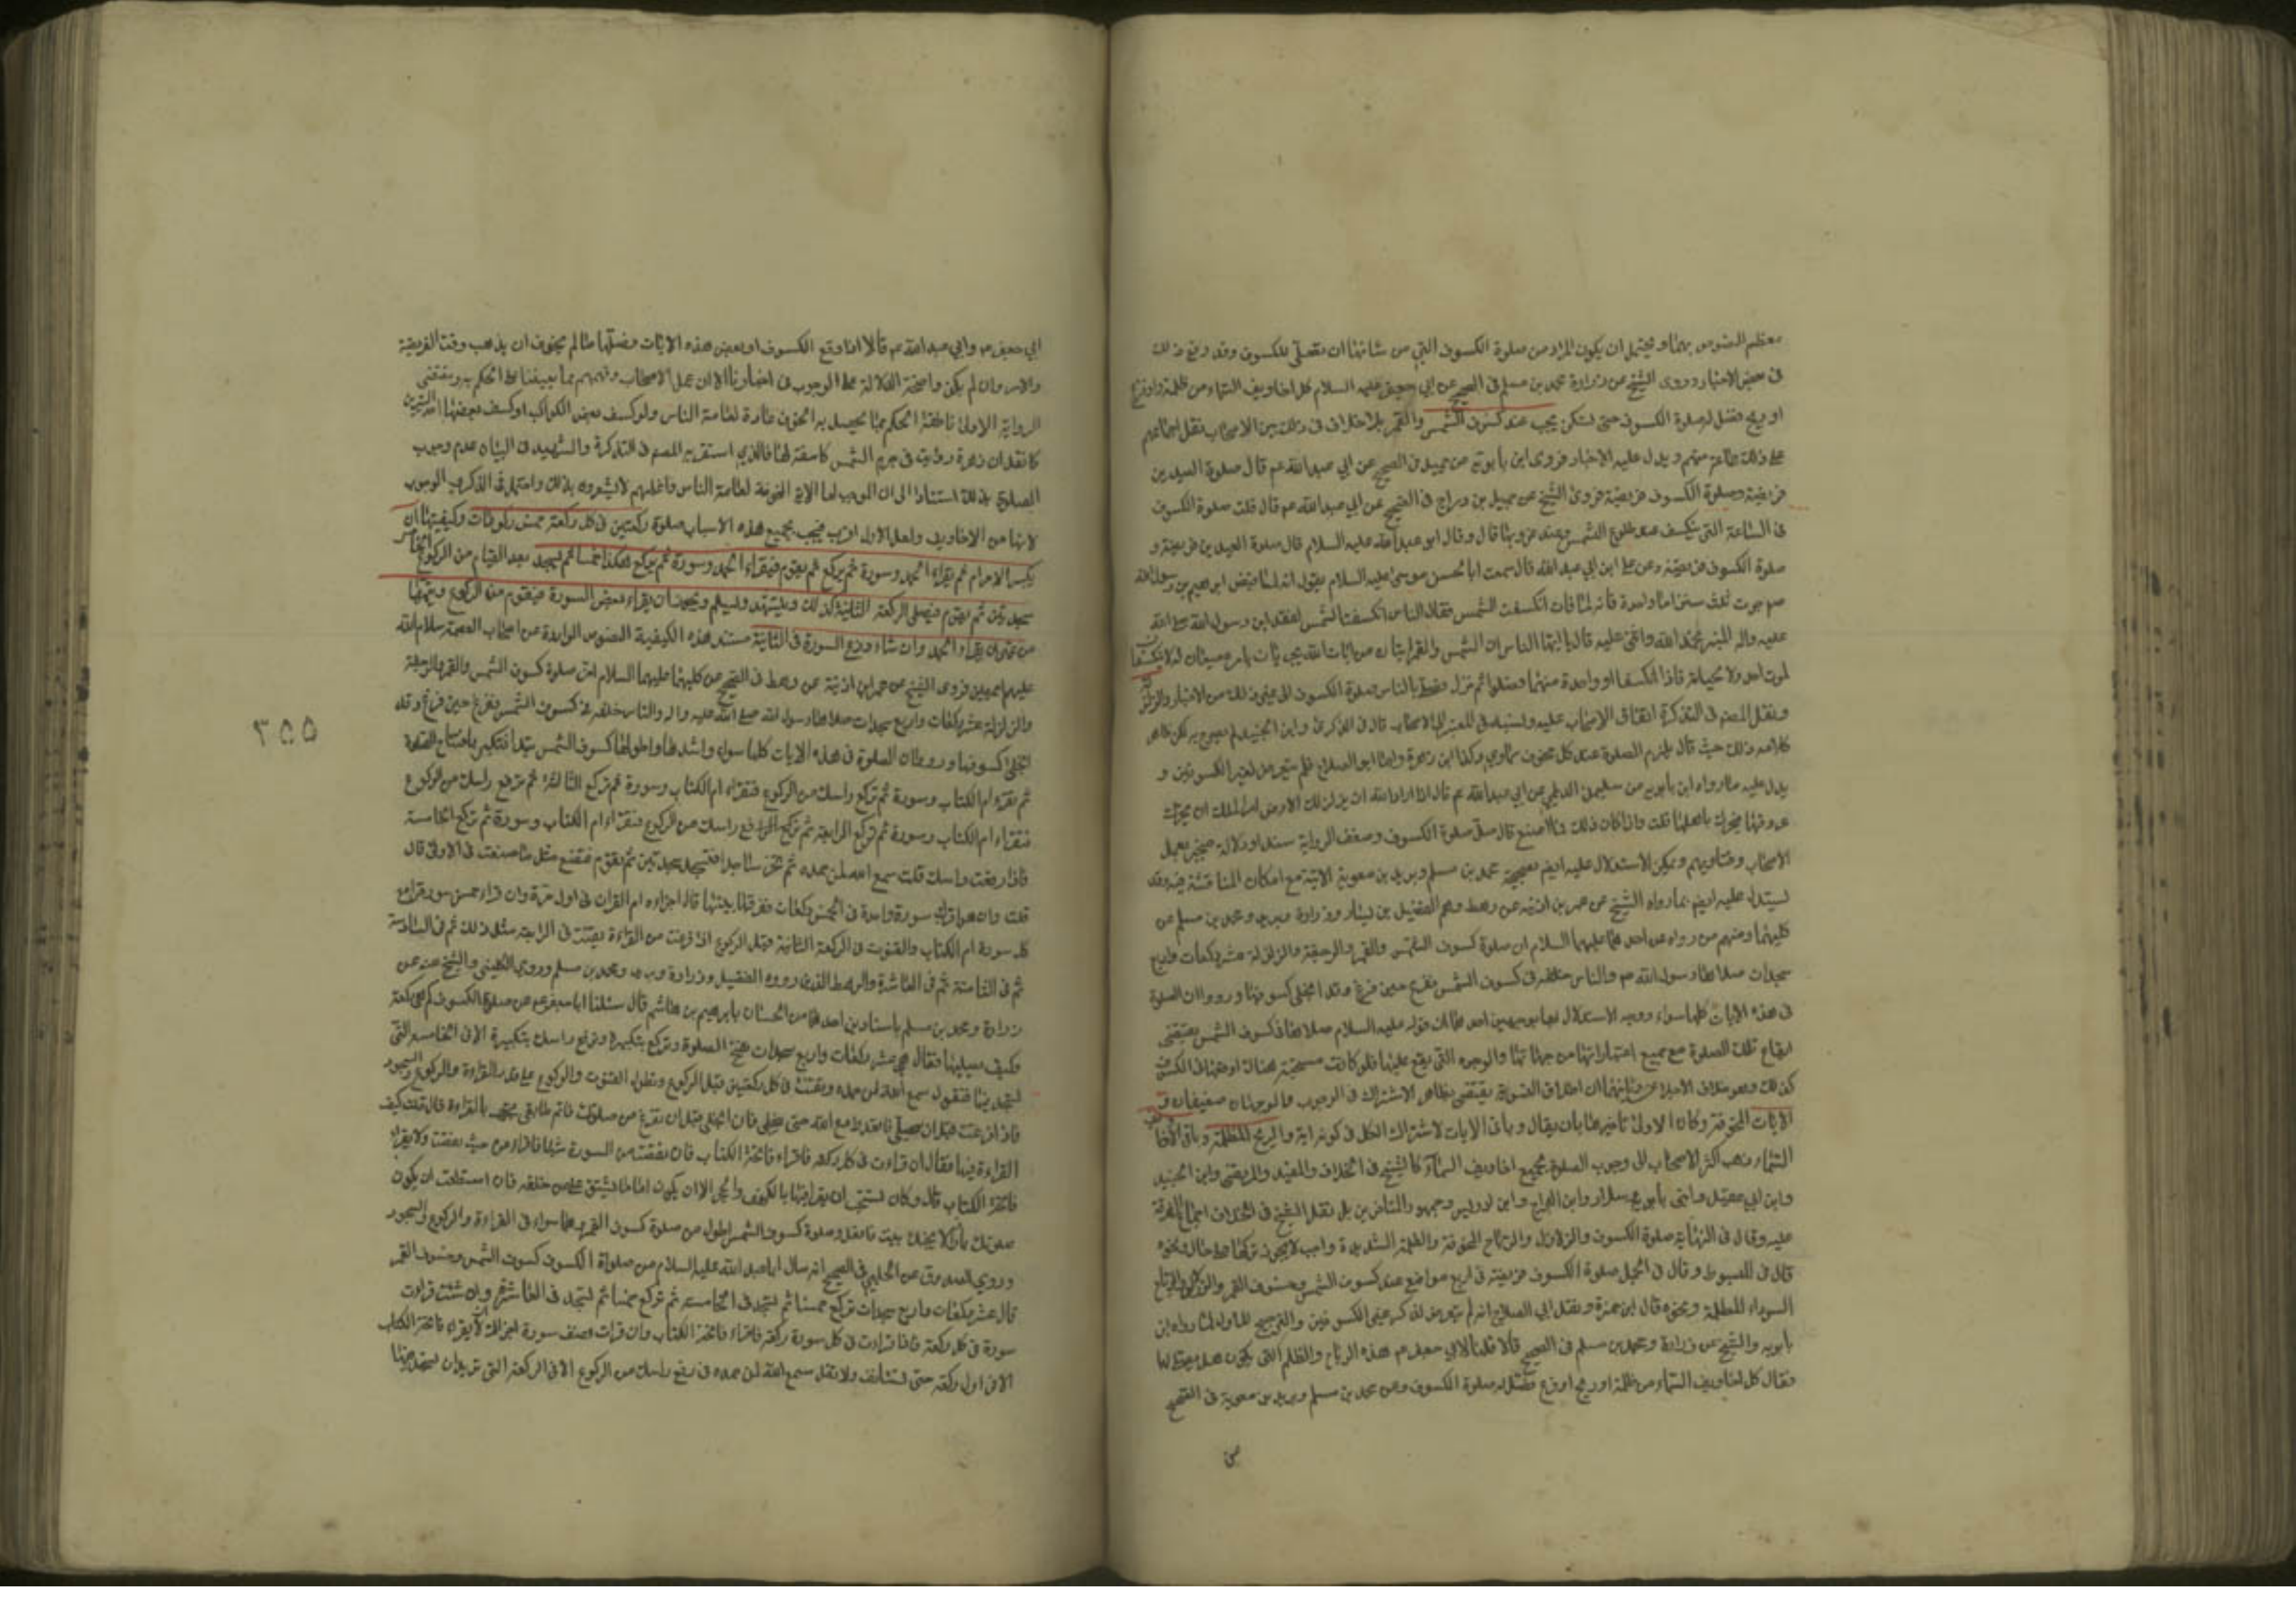 معظم النصوص بهما ويحتمل ان يكون المراد من صلوة الكسوف التي من شانها ان تصلى للكسوف وقد وقع ذلك
في بعض الاخبار وروى الشيخ عن زرارة ومحمد بن مسلم في الصحيح عن ابي جعفر عليه السلام كل اخاويف السماء من ظلمة او ريح
او ريح فصل له صلوة الكسوف حتى تسكن يجب عند كسوف الشمس والقمر بلا خلاف في ذلك بين الاصحاب نقل اجماعهم
على ذلك جماعة منهم ويدل عليه الاخبار فروى ابن بابويه عن جميل في الصحيح عن ابي عبد الله عم قال صلوة العيدين
فريضة وصلوة الكسوف فريضة فروى الشيخ عن جميل بن دراج في الصحيح عن ابي عبد الله عم قال قلت صلوة الكسوف
في الساعة التي ينكسف عند طلوع الشمس وعند غروبها قال وقال ابو عبد الله عليه السلام قال صلوة العيدين فريضة و
صلوة الكسوف فريضة وعن علي ابن ابي عبد الله قال سمعت ابا الحسن موسى عليه السلام يقول انه لما قبض ابراهيم بن رسول الله
صم جرت ثلث سنن اما واحدة فانه لما مات انكسفت الشمس فقال الناس انكسفت الشمس لفقد ابن رسول الله صلى الله
عليه واله المنبر فحمد الله واثنى عليه قال يا ايها الناس ان الشمس والقمر ايتان من ايات الله يجريان بامره مطيعان له لا ينكسفان
لموت احد ولا لحياته فاذا انكسفا او واحدة منهما فصلوا ثم نزل فصلى بالناس صلوة الكسوف الى غير ذلك من الاخبار والزلزلة
ونقل المصم في التذكرة اتفاق الاصحاب عليه ونسبه في المعتبر الى الاصحاب قال في الذكرى وابن الجنيد لم يصرح به لكن ظاهر
كلامه ذلك حيث قال يلزم الصلوة عند كل مخوف سماوي وكذا ابن زهرة واما ابو الصلاح فلم يتعرض لغير الكسوفين و
يدل عليه ما رواه ابن بابويه عن سليمن الديلمي عن ابي عبد الله عم قال اذا اراد الله ان يزلزل الارض امر الملك ان يحرك
عروقها فيحرك باهلها قلت فاذا كان ذلك فما اصنع قال صل صلوة الكسوف وضعف الرواية سندا ودلالة منجبر بعمل
الاصحاب وفتاويهم ويمكن الاستدلال عليه ايضا بصحيحة محمد بن مسلم وبريد بن معوية الاتية مع امكان المناقشة فيه وقد
يستدل عليه ايضا بما رواه الشيخ عن عمر بن اذينة عن رهط وهم الفضيل بن يسار وزرارة وبريد ومحمد بن مسلم عن
كليهما ومنهم من رواه عن احدهما عليهما السلام ان صلوة كسوف الشمس والقمر والرجفة والزلزلة عشر ركعات واربع
سجدات صلاها رسول الله صم والناس خلفه في كسوف الشمس ففرغ حين فرغ وقد انجلى كسوفها ورووا ان الصلوة
في هذه الايات كلها سواء ووجه الاستدلال بها بوجهين احدهما ان قوله عليه السلام صلاها في كسوف الشمس يقتضي
ايقاع تلك الصلوة مع جميع اعتباراتها من جهاتها والوجوه التي يقع عليها فلو كانت مستحبة هناك
كذلك وهو خلاف الاجماع وثانيهما ان اطلاق التسوية يقتضي بظاهره الاشتراك في الوجوب والوجهان ضعيفان و
الايات المخوفة وكان الاولى تاخير هذا بان يقال وباقي الايات لاشتراك الكل في كونه اية والريح المظلمة وباقي اخاويف
السماء ذهب اكثر الاصحاب الى وجوب الصلوة لجميع اخاويف السماء كالشيخ في الخلاف والمفيد والمرتضى وابن الجنيد
وابن ابي عقيل وابني بابويه وسلار وابن البراج وابن ادريس وجمهور المتاخرين بل نقل الشيخ في الخلاف اجماع الفرقة
عليه وقال في النهاية صلوة الكسوف والزلازل والرياح المخوفة والظلمة الشديدة واجب لا يجوز تركها على حال ونحوه
قال في المبسوط وقال في الجمل صلوة الكسوف فريضة في اربع مواضع عند كسوف الشمس وخسوف القمر والزلازل والرياح
السوداء المظلمة ونحوه قال ابن حمزة ونقل ابي الصلاح انه لم يتعرض لذكر غير الكسوفين والترجيح للاول لما رواه ابن
بابويه والشيخ عن زرارة ومحمد بن مسلم في الصحيح قالا قلنا لابي جعفر عم هذه الرياح والظلم التي يكون هل يصلى لها
فقال كل اخاويف السماء من ظلمة او ريح او فزع فصل له صلوة الكسوف وعن محمد بن مسلم وبريد بن معوية في الصحيح
عن
ابي جعفر عم وابي عبد الله عم قالا اذا وقع الكسوف او بعض هذه الايات فصلها ما لم يتخوف ان يذهب وقت الفريضة
والامر وان لم يكن واضحة الدلالة على الوجوب في اخبارنا الا ان عمل الاصحاب وفهمهم مما يعيننا على الحكم به ومقتضى
الرواية الاولى ناطقة الحكم بما يحصل به الخوف عادة لعامة الناس ولو كسف بعض الكواكب او كسف بعضها احد النيرين
كما نقل ان زهرة رؤيت في جرم الشمس كاسفة لها فالذي استقربه المصم في التذكرة والشهيد في البيان عدم وجوب
الصلوة بذلك استنادا الى ان الموجب لها الاية المخوفة لعامة الناس واغلبهم لا يشعرون بذلك واحتمل في الذكرى الوجوب
لانها من الاخاويف ولعل الاول اقرب فيجب بجميع هذه الاسباب صلوة ركعتين في كل ركعة خمس ركوعات وكيفيتها ان
يكبر للاحرام ثم يقراء الحمد وسورة ثم يركع ثم يقوم فيقراء الحمد وسورة ثم يركع هكذا خمسا ثم يسجد بعد القيام من الركوع الخامس
سجدتين ثم يقوم فيصلي الركعة الثانية كذلك ويتشهد ويسلم ويجوز ان يقراء بعض السورة فيقوم من الركوع ويتمها
من غير ان يقراء الحمد وان شاء وزع السورة في الثانية مستند هذه الكيفية النصوص الواردة عن اصحاب العصمة سلام الله
عليهم اجمعين فروى الشيخ عن عمر ابن اذينة عن رهط في الصحيح عن كليهما عليهما السلام ان صلوة كسوف الشمس والقمر والرجفة
والزلزلة عشر ركعات واربع سجدات صلاها رسول الله صلى الله عليه واله والناس خلفه في كسوف الشمس ففرغ حين فرغ وقد
انجلى كسوفها ورووا ان الصلوة في هذه الايات كلها سواء واشدها واطولها كسوف الشمس تبدأ فتكبر بافتتاح الصلوة
ثم تقراء ام الكتاب وسورة ثم تركع راسك من الركوع فتقراء ام الكتاب وسورة ثم تركع الثالثة ثم ترفع راسك من الركوع
فتقراء ام الكتاب وسورة ثم تركع الرابعة ثم ترفع راسك من الركوع فتقراء ام الكتاب وسورة ثم تركع الخامسة
فاذا رفعت راسك قلت سمع الله لمن حمده ثم تخر ساجدا فتسجد سجدتين ثم تقوم فتصنع مثل ما صنعت في الاولى قال
قلت وان هو قراء سورة واحدة في الخمس ركعات ففرقها بينها قال اجزاه ام القران في اول مرة وان قراء خمس سور قراء مع
كل سورة ام الكتاب والقنوت في الركعة الثانية قبل الركوع اذا فرغت من القراءة ثم تقنت في الرابعة مثل ذلك ثم في السادسة
ثم في الثامنة ثم في العاشرة والرهط الذين رووه الفضيل وزرارة وبريد ومحمد بن مسلم وروى الكليني والشيخ عنه عن
زرارة ومحمد بن مسلم باسنادين احدهما من الحسان بابراهيم بن هاشم قال سئلنا ابا جعفر عم عن صلوة الكسوف كم هي ركعة
وكيف نصليها فقال هي عشر ركعات واربع سجدات تفتتح الصلوة وتركع بتكبيرة وترفع راسك بتكبيرة الا في الخامسة التي
تسجد فيها فتقول سمع الله لمن حمده وتقنت في كل ركعتين قبل الركوع وتطول القنوت والركوع على قدر القراءة والركوع والسجود
فاذا فرغت قبل ان ينجلي فاقعد فادع الله حتى ينجلي فان انجلى قبل ان تفرغ من صلوتك فاتم ما بقي تجهر بالقراءة قال قلت كيف
القراءة فيها فقال ان قراءت في كل ركعة فاقراء فاتحة الكتاب فان نقصت من السورة شيئا فاقراء من حيث نقصت ولا تقراء
فاتحة الكتاب قال وكان يستحب ان يقراء فيها بالكهف والحجر الا ان يكون اماما يشق على من خلفه فان استطعت ان يكون
صلوتك بارزا لا يجنك بيت فافعل وصلوة كسوف الشمس اطول من صلوة كسوف القمر وهما سواء في القراءة والركوع والسجود
وروى الصدوق عن الحلبي في الصحيح انه سال ابا عبد الله عليه السلام عن صلوة الكسوف كسوف الشمس وخسوف القمر
قال عشر ركعات واربع سجدات تركع خمسا ثم تسجد في الخامسة ثم تركع خمسا ثم تسجد في العاشرة وان شئت قراءت
سورة في كل ركعة فاذا قراءت في كل سورة ركعة فاقراء فاتحة الكتاب وان قرات نصف سورة اجزاك ان لا تقراء فاتحة الكتاب
الا في اول ركعة حتى تستانف ولا تقل سمع الله لمن حمده في رفع راسك من الركوع الا في الركعة التي تريد ان تسجد فيها
٣٥٥